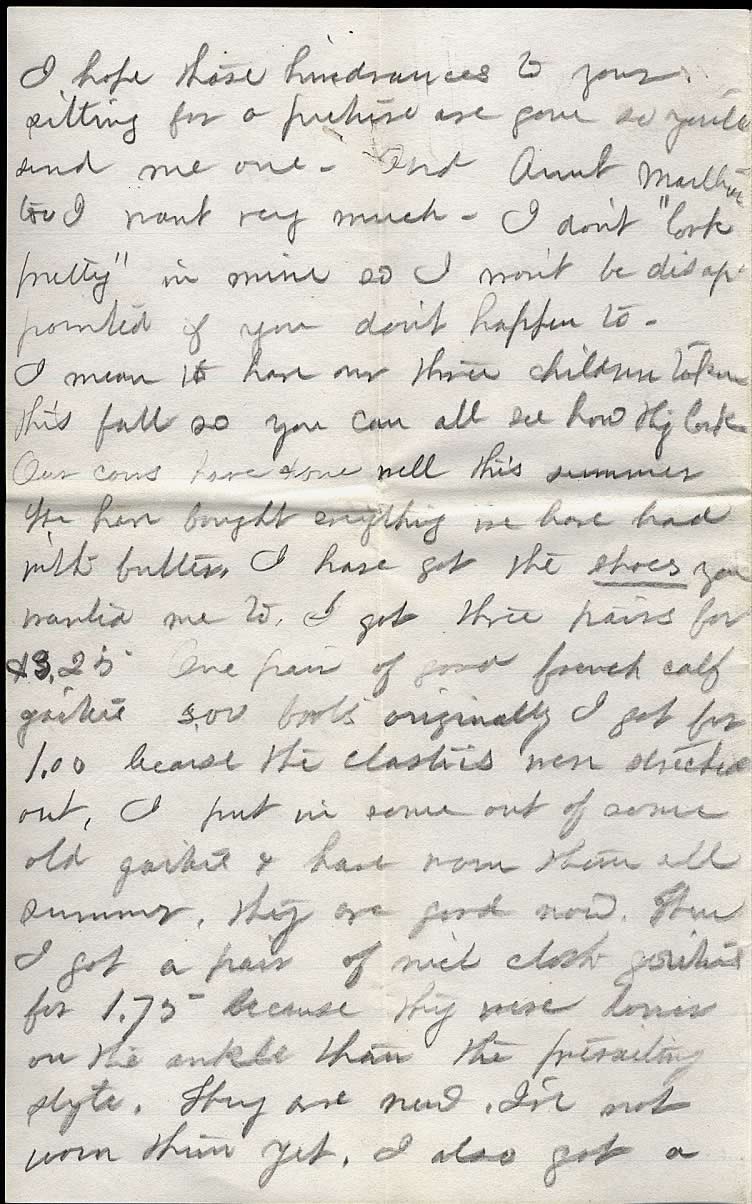 I hope those hindrances to your
sitting for a picture are gone so you'll
send me one - And Aunt Martha
too I want very much - I don't "look
pretty" in mine so I won't be disap-
pointed if you don't happen to -
I mean to have our three children taken
this fall so you can all see how they look
Our cows have done well this summer
We have bought everything we have had
with butter, I have got the shoes you
wanted me to. I got three pairs for
$3,25 One pair of good french calf
gaiters 3,00 boots originally I got for
1,00 because the elastics were stretched
out, I put in some out of some
old gaiters & have worn them all
summer, they are good now. Then
I got a pair of nice cloth gaiters
for 1.75 because they were lower
on the ankle than the prevailing
style. They are new. I've not
worn them yet. I also got a